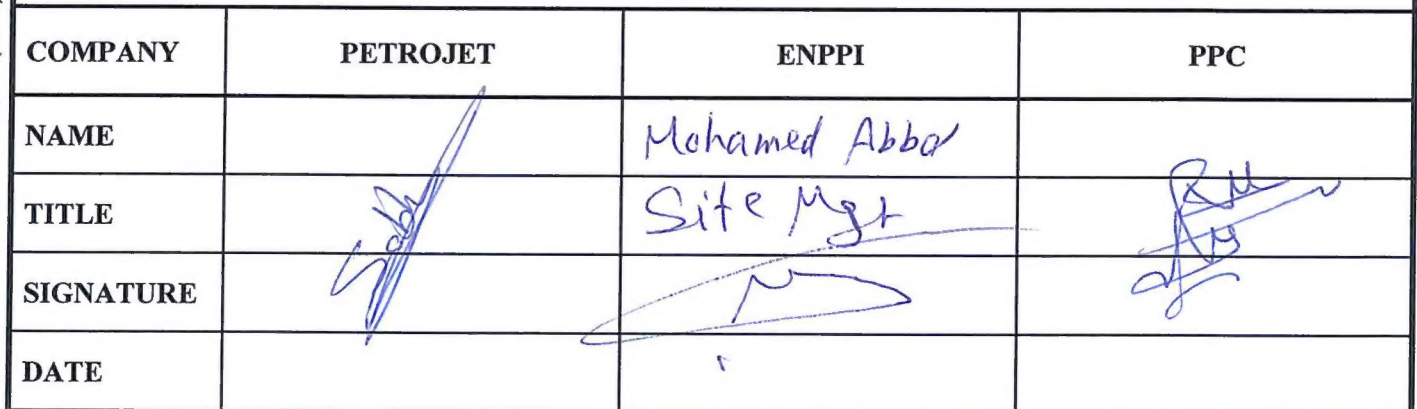 COMPANY PETROJET ENPPI PPC
NAME Mohamed Abbas
TITLE Site Mgr
SIGNATURE
DATE